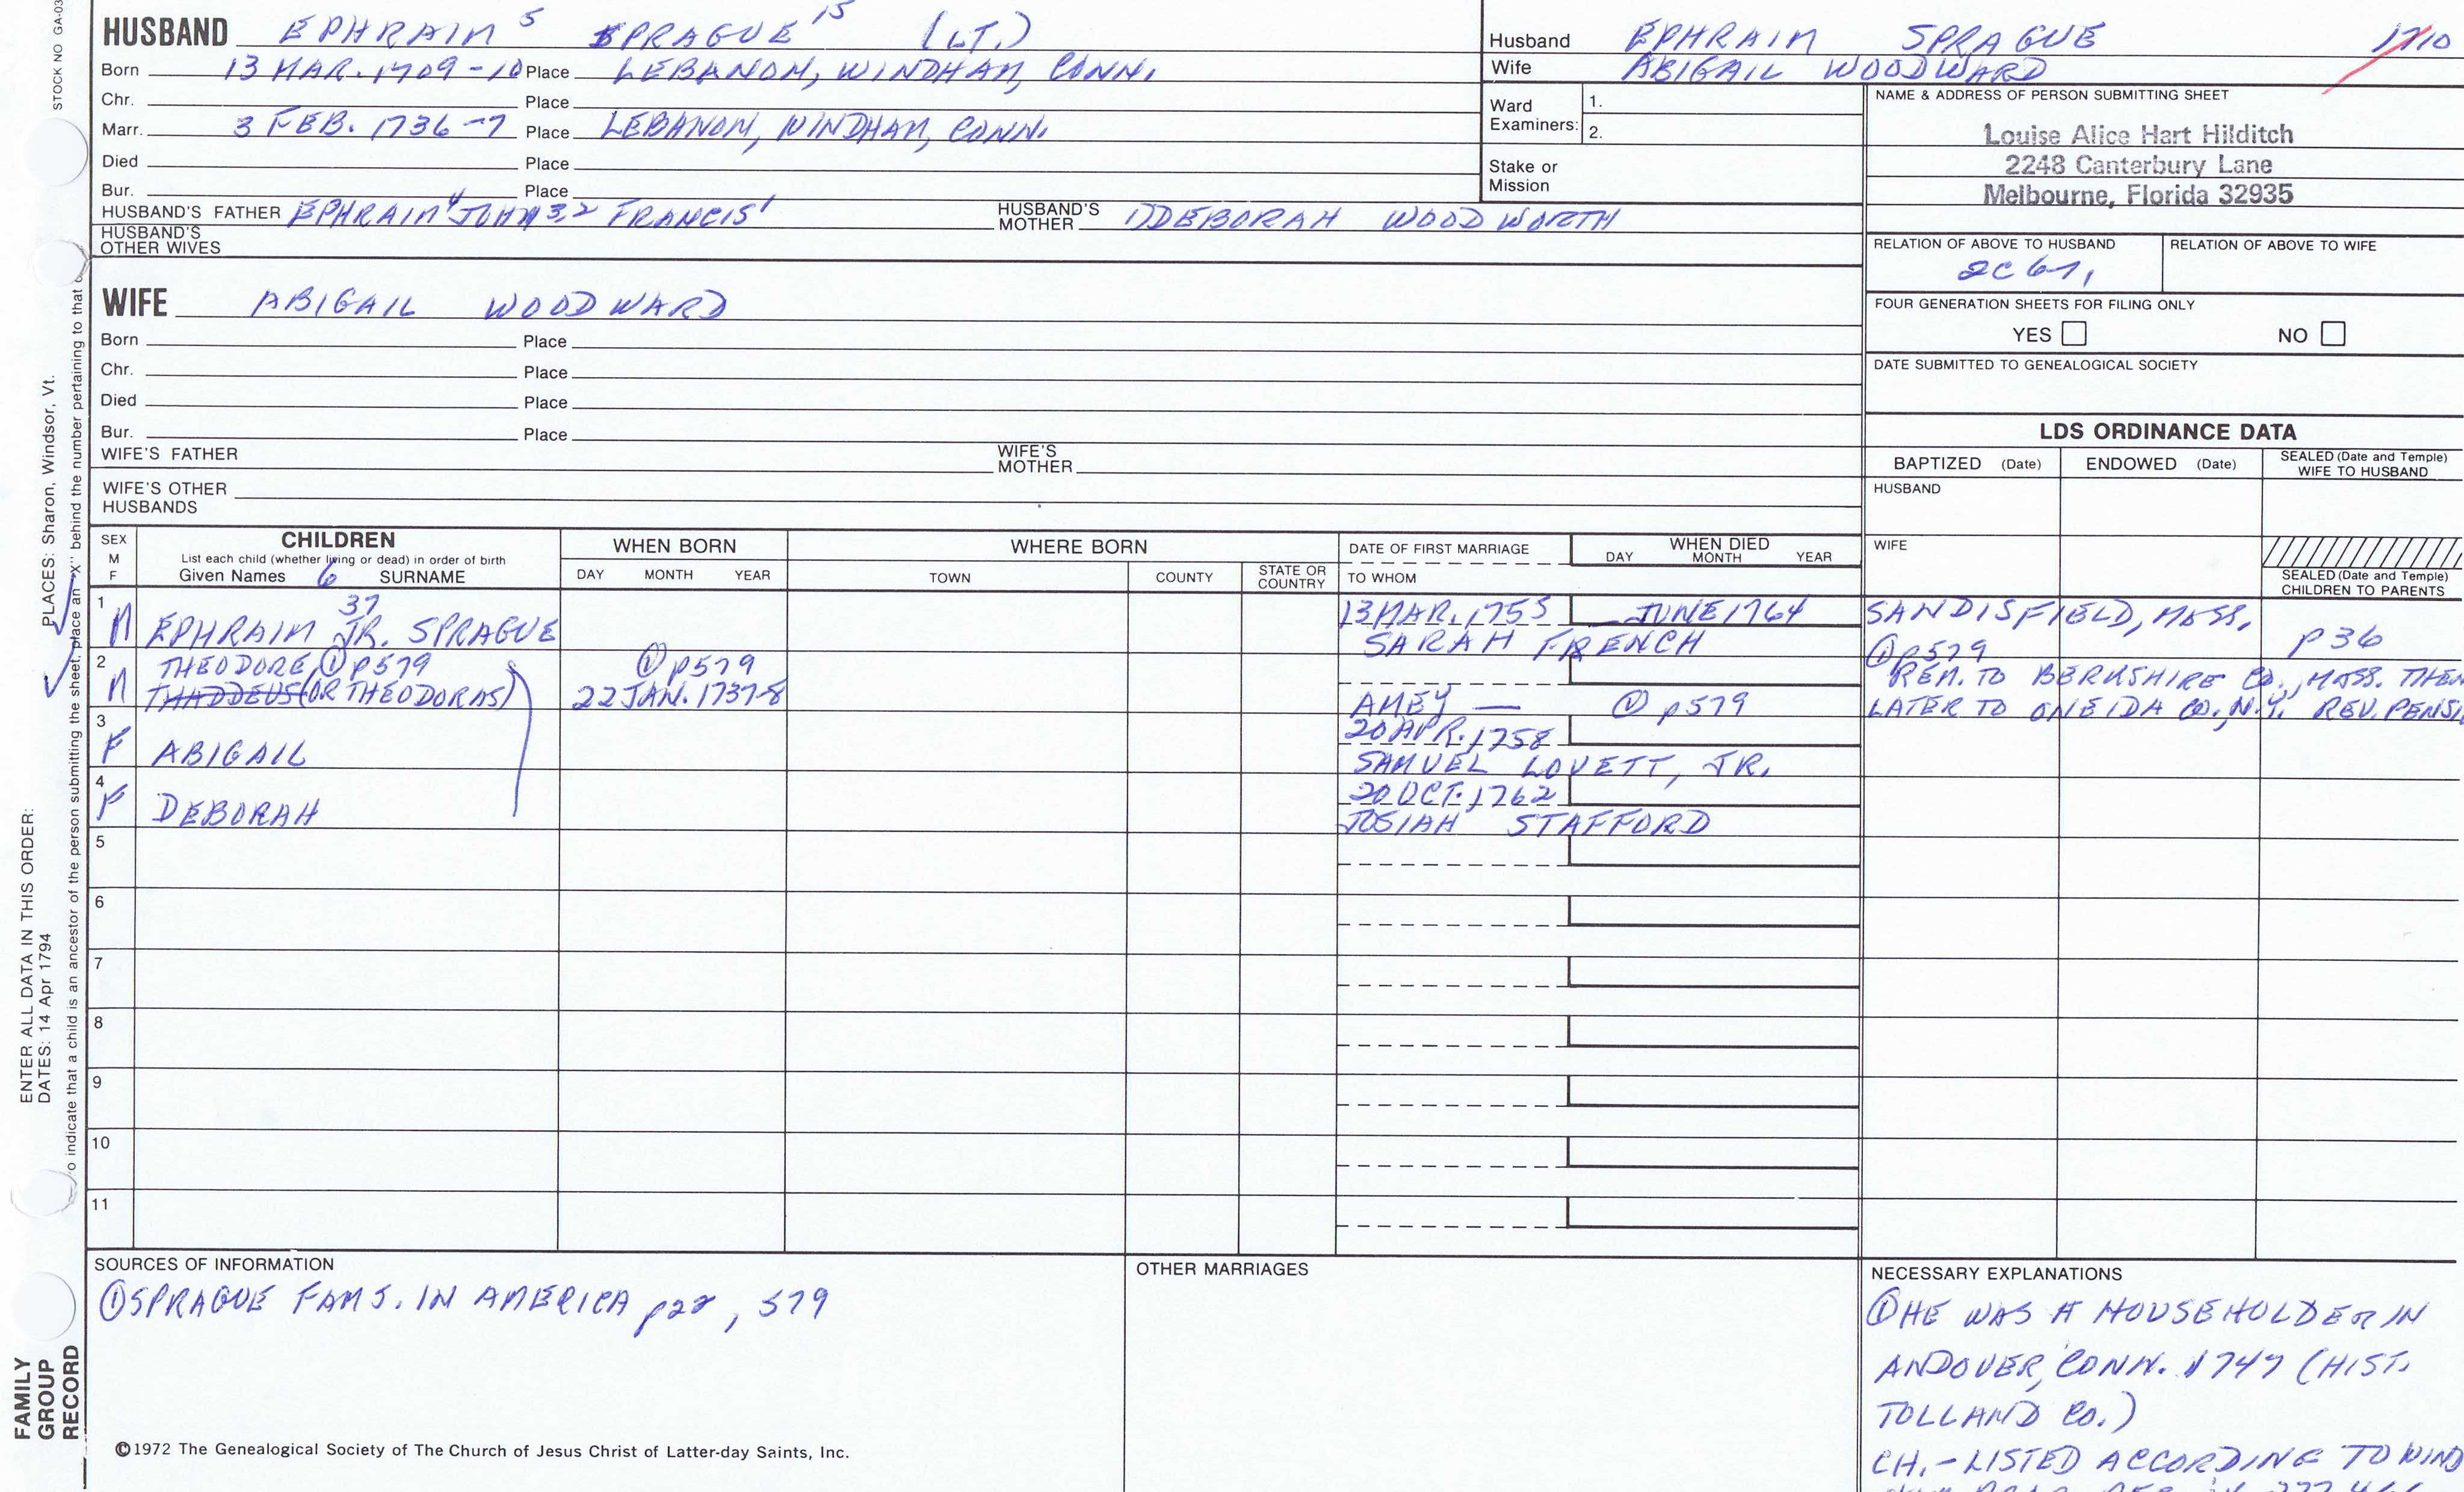 HUSBAND EPHRAIM 5 SPRAGUE 15 (LT.)
Born 13 MAR. 1709-10 Place LEBANON, WINDHAM, CONN.
Chr. Place
Marr. 3 FEB. 1736-7 Place LEBANON, WINDHAM, CONN.
Died Place
Bur. Place
HUSBAND'S FATHER EPHRAIM 4 JOHN 3 2 FRANCIS 1 HUSBAND'S MOTHER DEBORAH WOODWORTH
HUSBAND'S OTHER WIVES
Husband EPHRAIM SPRAGUE 1710
Wife ABIGAIL WOODWARD
Ward Examiners: 1.
2.
Stake or Mission
NAME & ADDRESS OF PERSON SUBMITTING SHEET
Louise Alice Hart Hilditch
2248 Canterbury Lane
Melbourne, Florida 32935
RELATION OF ABOVE TO HUSBAND RELATION OF ABOVE TO WIFE
FOUR GENERATION SHEETS FOR FILING ONLY
YES NO
DATE SUBMITTED TO GENEALOGICAL SOCIETY
WIFE ABIGAIL WOODWARD
Born Place
Chr. Place
Died Place
Bur. Place
WIFE'S FATHER WIFE'S MOTHER
WIFE'S OTHER HUSBANDS
LDS ORDINANCE DATA
BAPTIZED (Date) ENDOWED (Date) SEALED (Date and Temple) WIFE TO HUSBAND
HUSBAND
WIFE
SEALED (Date and Temple) CHILDREN TO PARENTS
SEX M F CHILDREN WHEN BORN WHERE BORN DATE OF FIRST MARRIAGE WHEN DIED
List each child (whether living or dead) in order of birth
Given Names 6 SURNAME DAY MONTH YEAR TOWN COUNTY STATE OR COUNTRY TO WHOM DAY MONTH YEAR
1 37 13 MAR. 1755 JUNE 1764 SANDISFIELD, MASS.
M EPHRAIM JR. SPRAGUE SARAH FRENCH ① p579 p36
2 THEODORE, ① p579 ① p579 REM. TO BERKSHIRE CO., MASS. THEN
M THADDEUS (OR THEODORAS) 22 JAN. 1737-8 AMEY — ① p579 LATER TO ONEIDA CO., N.Y. REV. PENSI
3 20 APR. 1758
F ABIGAIL SAMUEL LOVETT, JR.
4 20 OCT. 1762
F DEBORAH JOSIAH STAFFORD
5
6
7
8
9
10
11
SOURCES OF INFORMATION
① SPRAGUE FAMS. IN AMERICA p22, 579
OTHER MARRIAGES
NECESSARY EXPLANATIONS
① HE WAS A HOUSEHOLDER IN
ANDOVER, CONN. 1747 (HIST.
TOLLAND CO.)
CH. - LISTED ACCORDING TO WIND
©1972 The Genealogical Society of The Church of Jesus Christ of Latter-day Saints, Inc.
STOCK NO GA-03
PLACES: Sharon, Windsor, Vt.
ENTER ALL DATA IN THIS ORDER:
DATES: 14 Apr 1794
o indicate that a child is an ancestor of the person submitting the sheet, place an "X" behind the number pertaining to that
FAMILY
GROUP
RECORD